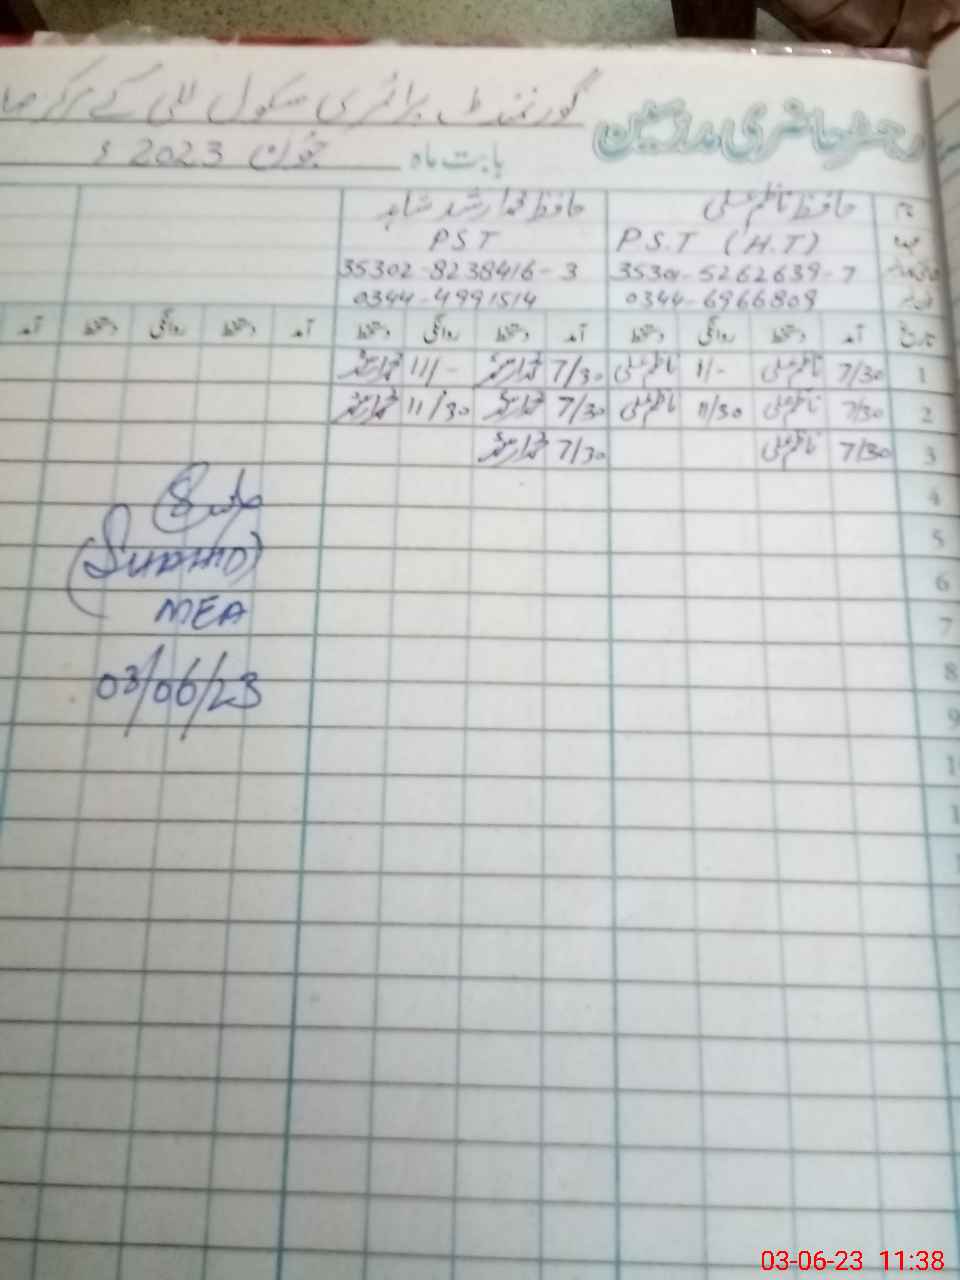 رجسٹر حاضری مدرسین گورنمنٹ پرائمری سکول للی کے مرکز
بابت ماہ جون 2023ء
نام حافظ ناظم علی حافظ محمد ارشد شاہد
عہدہ P.S.T (H.T) PST
35301-5262639-7 35302-8238416-3
0344-6966809 0344-4991514
تاریخ آمد دستخط روانگی دستخط آمد دستخط روانگی دستخط آمد دستخط روانگی دستخط آمد
1 7/30 ناظم علی 11/- ناظم علی 7/30 محمد ارشد 11/- محمد ارشد
2 7/30 ناظم علی 11/30 ناظم علی 7/30 محمد ارشد 11/30 محمد ارشد
3 7/30 ناظم علی 7/30 محمد ارشد
4
5
6
7
8
9
MEA
03/06/23
03-06-23 11:38